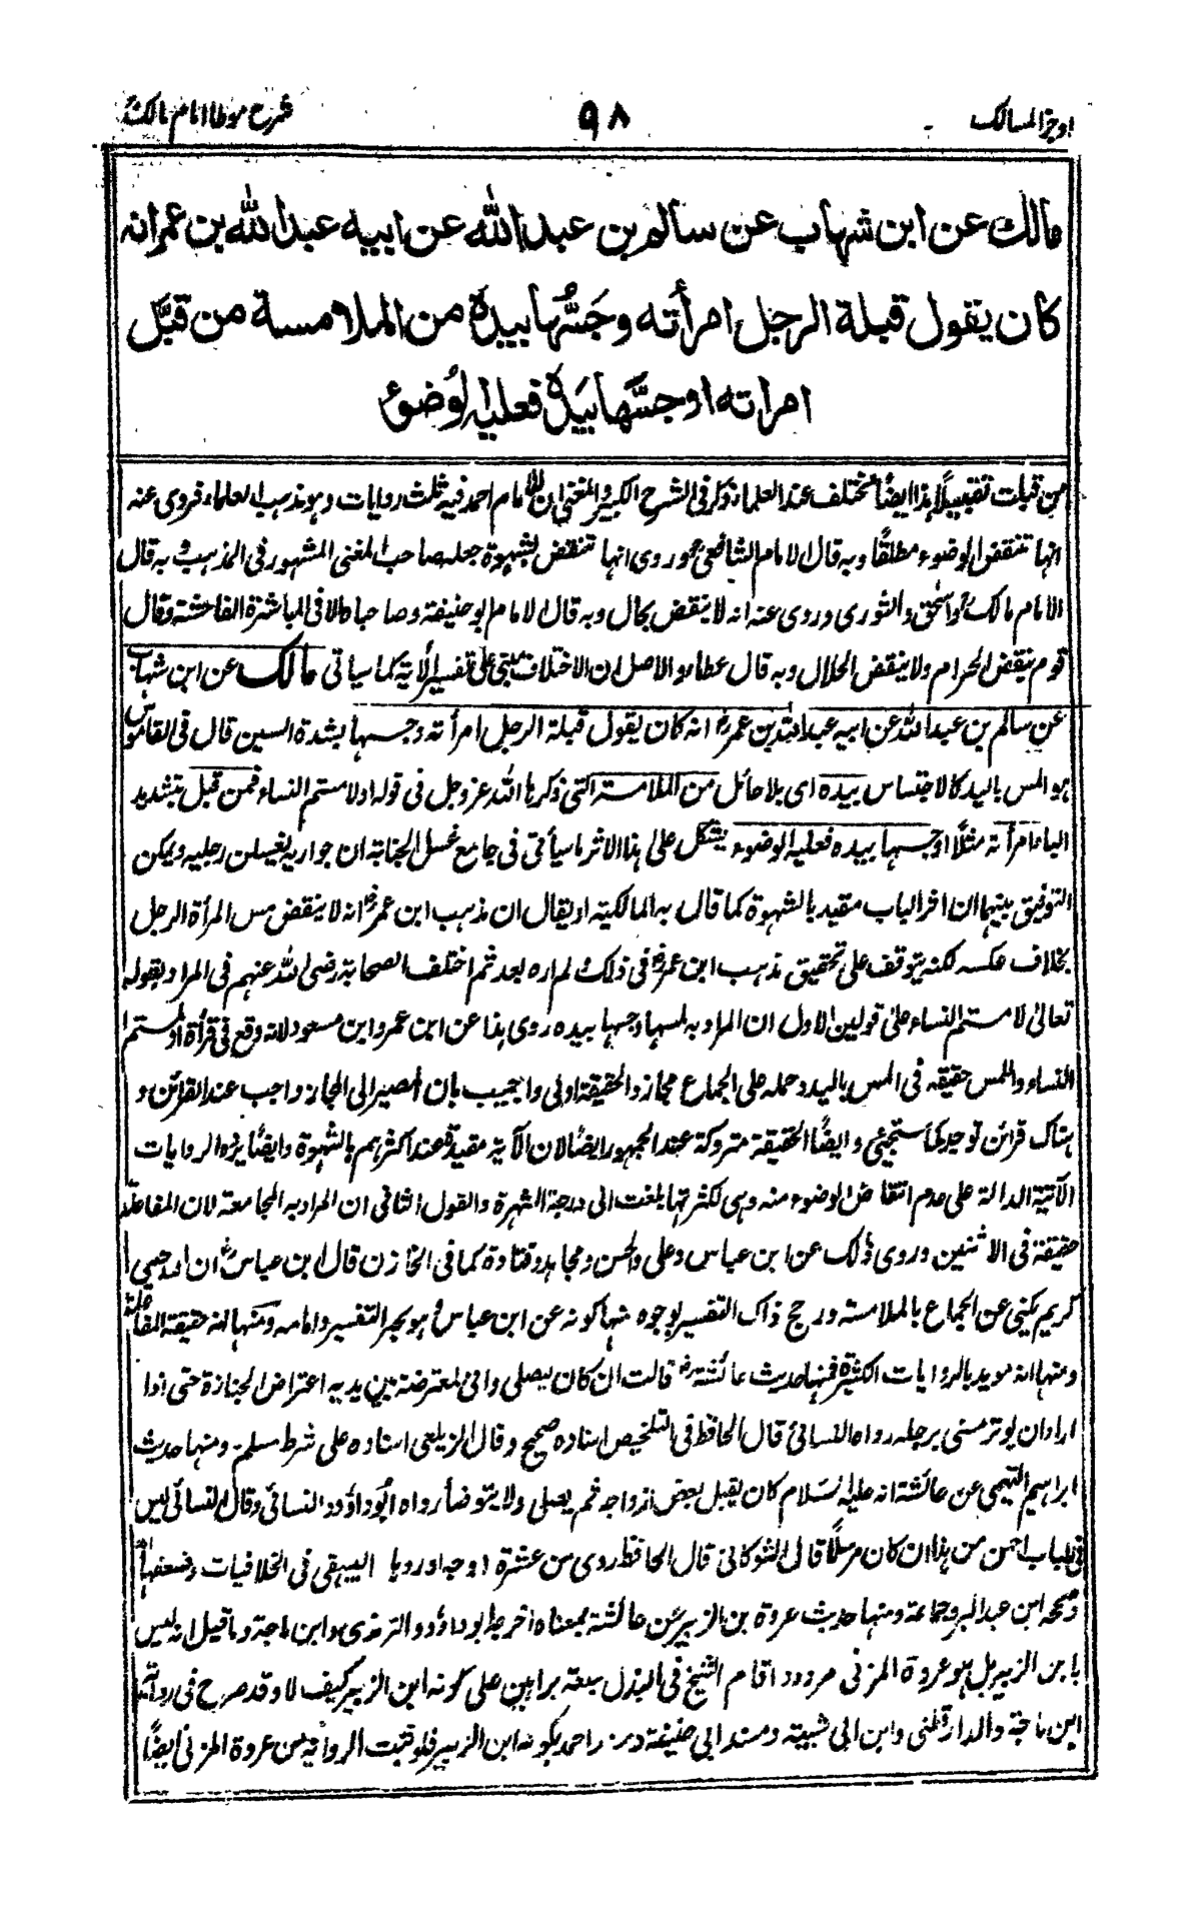 اوجز المسالك ٩٨ شرح موطا امام مالك
مالك عن ابن شهاب عن سالم بن عبد الله عن ابيه عبد الله بن عمر انه
كان يقول قبلة الرجل امرأته وجَسُّها بيده من الملامسة من قبَّل
امراته او جسَّها بيَدِه فعليه الوُضوء
من قبلت تقبيلًا هذا ايضًا مختلف عند العلماء ذكر فى الشرح الكبير والمغنى ان للامام احمد فيه ثلث روايات وهو مذهب العلماء فروى عنه
انها تنقض الوضوء مطلقًا وبه قال الامام الشافعى وروى انها تنقض لشهوة جعله صاحب المغنى المشهور فى المذهب وبه قال
الامام مالك واسحٰق والثورى وروى عنه انه لا ينقض بحال وبه قال الامام ابو حنيفة وصاحباه الا فى المباشرة الفاحشة وقال
قوم ينقض الحرام ولا ينقض الحلال وبه قال عطاء والاصل ان الاختلاف مبتنى على تفسير الأية كما سياتى مالك عن ابن شهاب
عن سالم بن عبد الله عن ابيه عبد الله بن عمر انه كان يقول قبلة الرجل امرأته وجسها بشدة السين قال فى القاموس
هو المس باليد كالاجتساس بيده اى بلا حائل من الملامسة التى ذكرها الله عز وجل فى قوله او لا مستم النساء فمن قبل بتشديد
الباء امرأته مثلًا او جسها بيده فعليه الوضوء يشكل على هذا الاثر ما سيأتى فى جامع غسل الجنابة ان جواريه يغسلن رجليه ويمكن
التوفيق بينهما ان اثر الباب مقيد بالشهوة كما قال به المالكية او يقال ان مذهب ابن عمر انه لا ينقض مس المرأة الرجل
بخلاف عكسه لكنه يتوقف على تحقيق مذهب ابن عمر فى ذلك لم اره بعد ثم اختلف الصحابة رضى الله عنهم فى المراد بقوله
تعالىٰ لا مستم النساء علىٰ قولين الاول ان المراد به لمسها وجسها بيده روى هذا عن ابن عمر وابن مسعود لانه وقع فى قرأة او لمستم
النساء واللمس حقيقة فى المس باليد وحمله على الجماع مجاز والحقيقة اولى واجيب بان المصير الى المجاز واجب عند القرائن و
هناك قرائن توجد كما ستجيئى وايضًا الحقيقة متروكة عند الجمهور ايضًا لان الآية مقيدة عند اكثرهم بالشهوة وايضًا يرده الروايات
الآتية الدالة على عدم انتقاض الوضوء منه وهى لكثرتها بلغت الى درجة الشهرة والقول الثانى ان المراد به المجامعة لان المفاعلة
حقيقة فى الاثنين وروى ذلك عن ابن عباس وعلى والحسن ومجاهد وقتادة كما فى الخازن قال ابن عباس ان الله حيى
كريم يكنى عن الجماع بالملامسة ورجح ذاك التفسير لوجوه منها كونه عن ابن عباس وهو بحر التفسير وامامه ومنها انه حقيقة المفاعلة
ومنها انه مويد بالروايات الكثيرة فمنها حديث عائشة قالت ان كان ليصلى وانى لمعترضة بين يديه اعتراض الجنازة حتى اذا
اراد ان يوتر مسنى برجله رواه النسائى قال الحافظ فى التلخيص اسناده صحيح وقال الزيلعى اسناده على شرط مسلم ومنها حديث
ابراهيم التيمى عن عائشة انه عليه السلام كان يقبل بعض ازواجه ثم يصلى ولا يتوضأ رواه ابوداؤد والنسائى وقال النسائى ليس
فى الباب احسن من هذا وان كان مرسلًا قال الشوكانى قال الحافظ روى من عشرة اوجه اوردها البيهقى فى الخلافيات وضعفها
وصححه ابن عبد البر وجماعة ومنها حديث عروة بن الزبير عن عائشة بمعناه اخرجه ابو داؤد والترمذى وابن ماجة وما قيل انه ليس
بابن الزبير بل هو عروة المزنى مردود اقام الشيخ فى البذل سبعة براهين على كونه ابن الزبير كيف لا وقد صرح فى رواية
ابن ماجة والدارقطنى وابن ابى شيبة ومسند ابى حنيفة ومسند احمد بكونه ابن الزبير فلو ثبت الرواية من عروة المزنى ايضًا